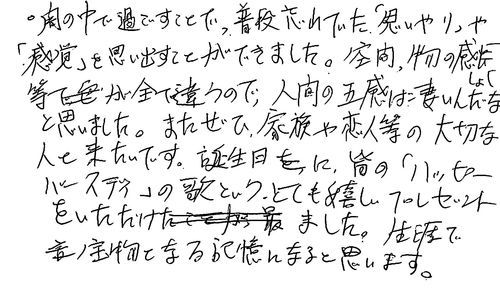 。闇の中で過ごすことで、普段忘れていた「思いやり」や
「感覚」を思い出すことができました。空間、物の感触
等が全て違うので、人間の五感は凄いんだな
と思いました。またぜひ、家族や恋人等の大切な
人と来たいです。誕生日に、皆の「ハッピー
バースデイ」の歌という、とても嬉しいプレゼント
をいただけました。生涯で
宝物となる記憶になると思います。